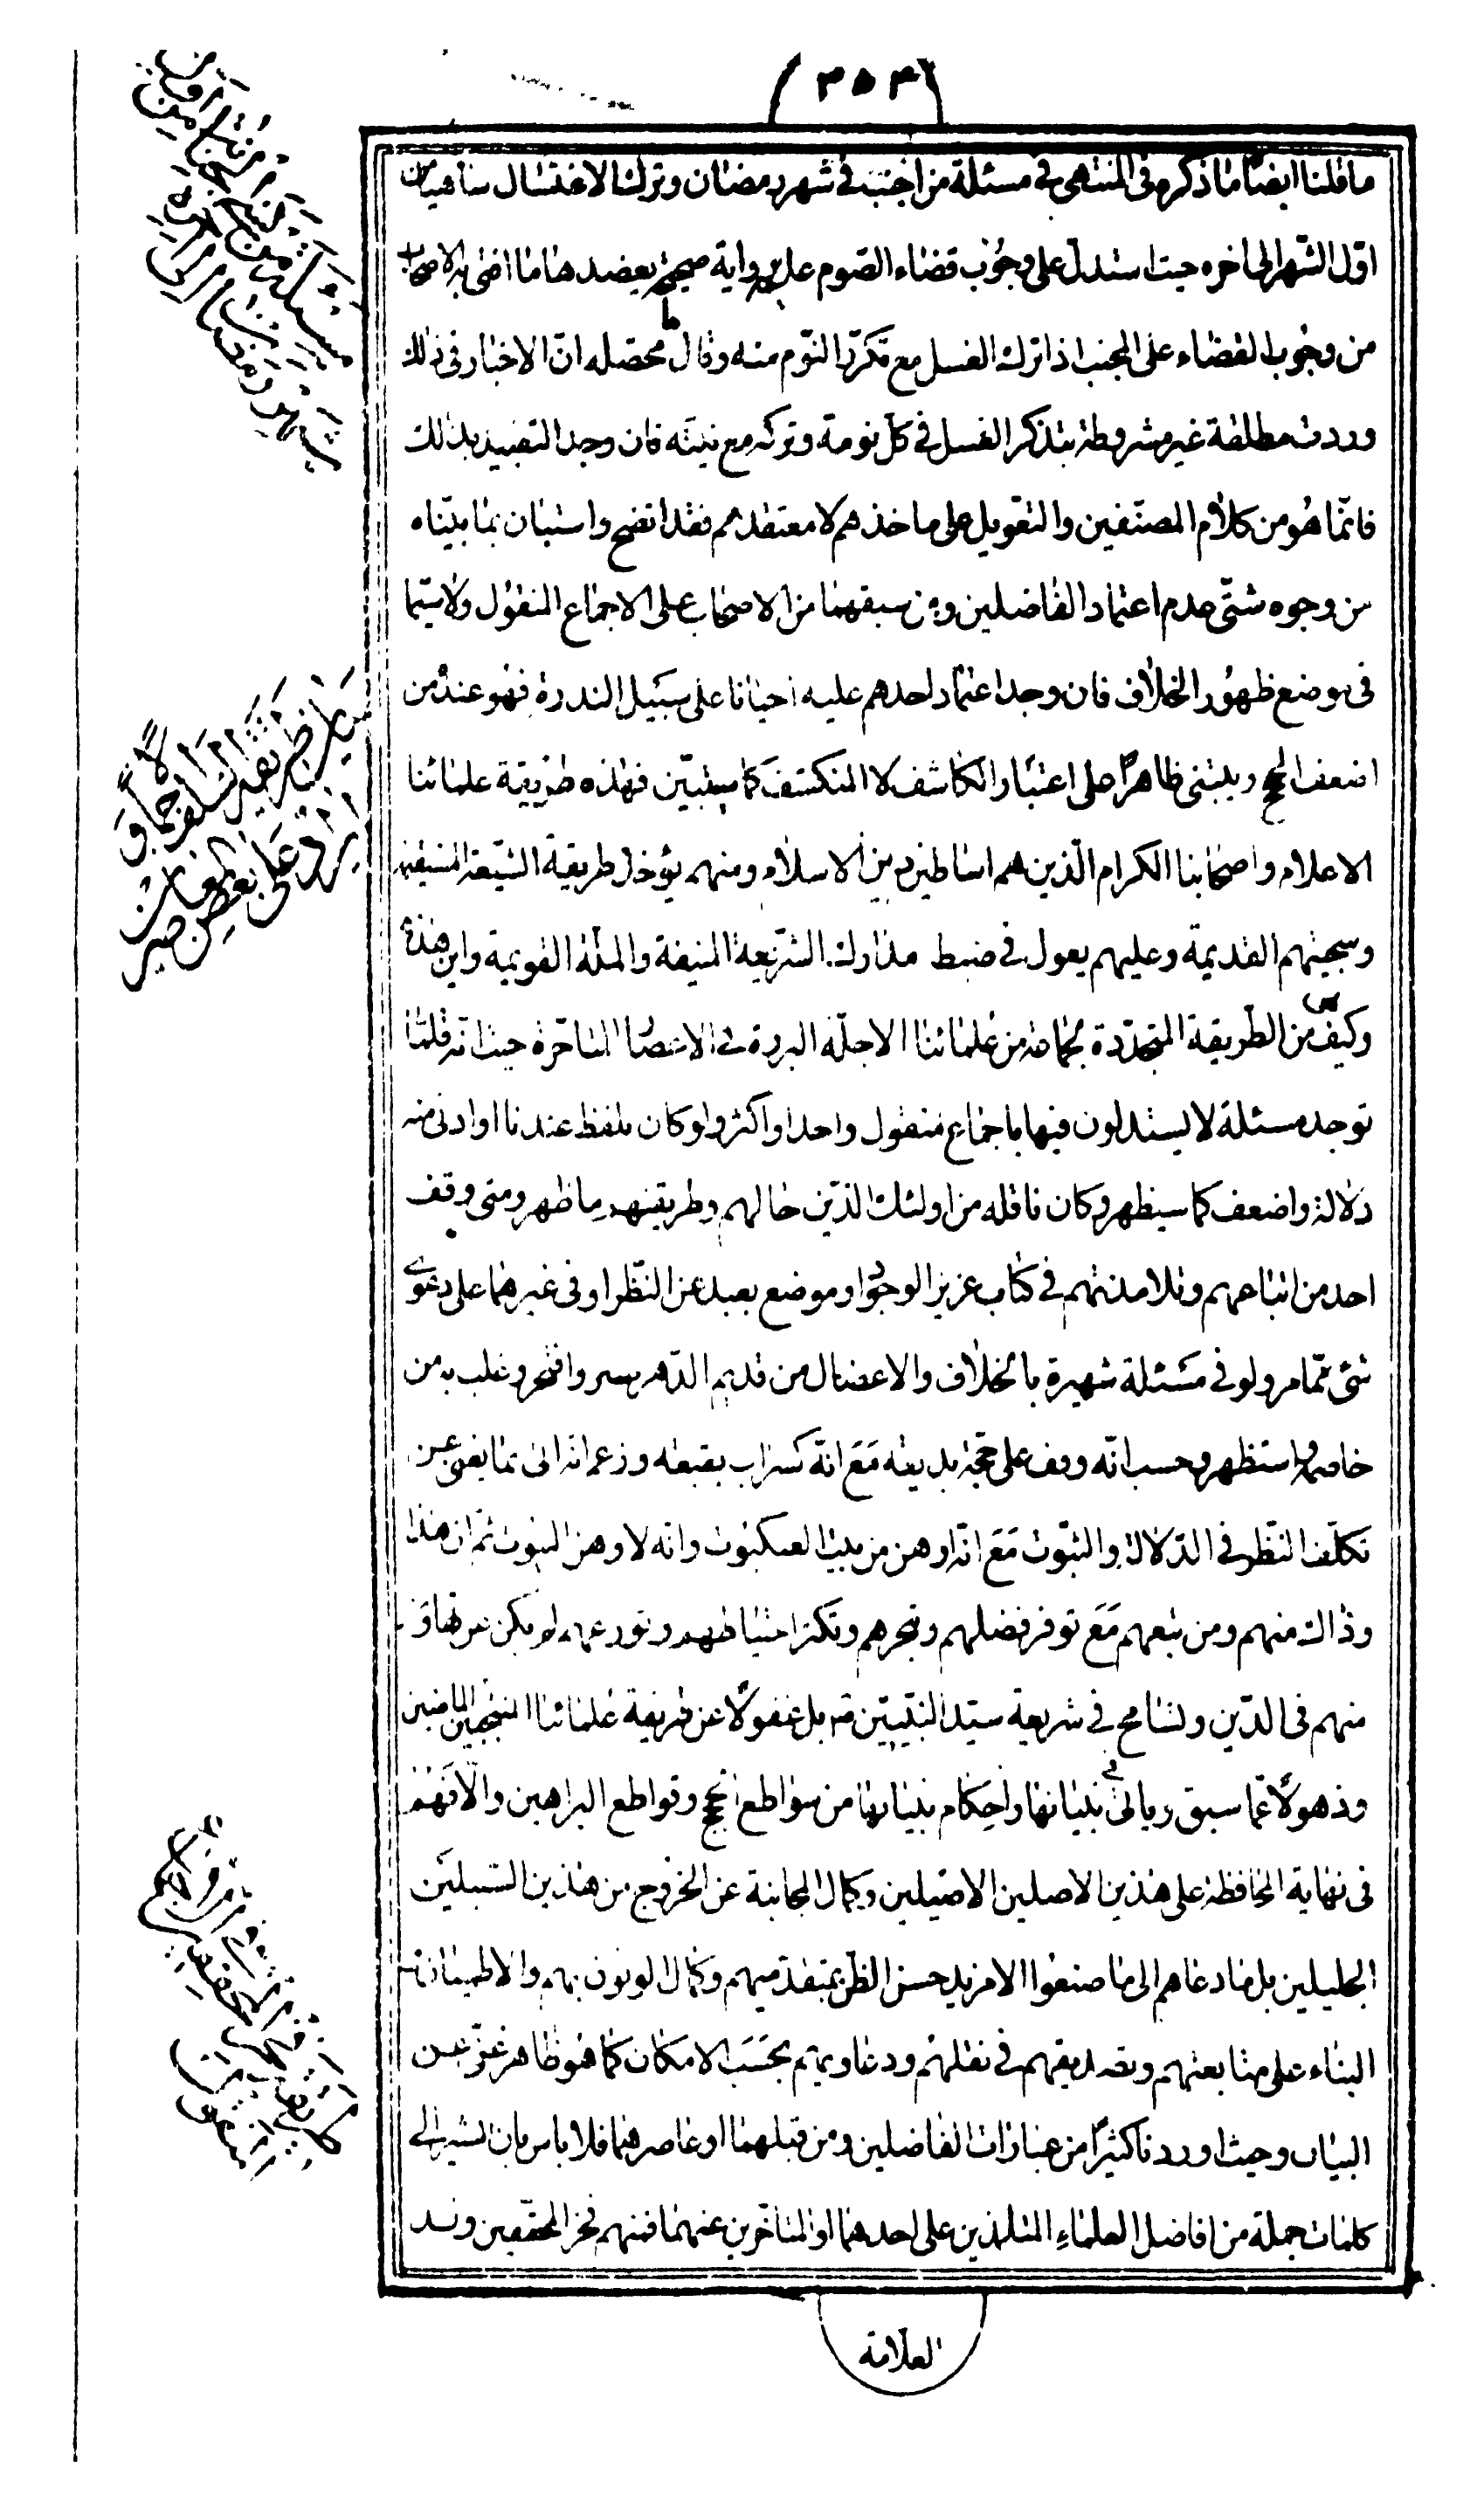 (٣٥٣)
ما قلنا ايضا ما ذكره فى المنتهى فى مسئلة من اجنب فى شهر رمضان وترك الاغتسال ساهيا من
اوّل الشهر الى اخره حيث استدل على وجوب قضاء الصوم عليه برواية صحيحة يعضدها ما افتى به الاصحاب
من وجوب القضاء على المجنب اذا ترك الغسل مع تكرّر النوم منه وقال ما محصّله انّ الاخبار فى ذلك
وردت مطلقة غير مشروطة بتذكر الغسل فى كلّ نومة وتركه مع نيته فان وجد التقييد بذلك
فانّما هو من كلام المصنّفين والتعويل على ماخذهم لا معتقدهم فقد اتضح واستبان بما بيّناه
من وجوه شتّى عدم اعتماد الفاضلين ومن سبقهما من الاصحاب على الاجماع المنقول ولا سيّما
فى موضع ظهور الخلاف فان وجد اعتماد احدهم عليه احيانا على سبيل الندرة فهو عنده من
اضعف الحجج ويبتنى ظاهرًا على اعتبار الكاشف لا المنكشف كما سيتبيّن فهذه طريقة علمائنا
الاعلام واصحابنا الكرام الّذين هم اساطين دين الاسلام ومنهم يؤخذ طريقة الشيعة المستقيمة
وسجيتهم القديمة وعليهم يعول فى ضبط مدارك الشريعة المنيفة والملّة القويمة واين هذه
وكيف هى من الطريقة المتجدّدة لجماعة من علمائنا الاجلّة البررة فى الاعصار المتاخرة حيث انّه قلّما
توجد مسئلة لا يستدلون فيها باجماع منقول واحد او اكثر ولو كان بلفظ عندنا او ادنى منه
دلالة واضعف كما سيظهر وكان ناقله من اولئك الذين حالهم وطريقتهم ما ظهر ومتى وقف
احد من اتباعهم وتلامذتهم فى كتاب عزيز الوجود او موضع بعيد عن النظر او فى غيرهما على دعوى
شئ ممّا مر ولو فى مسئلة شهيرة بالخلاف والاعضال من قديم الدّهر سر وافتخر وغلب به من
خاصمه واستظهر وحسب انّه وقف على حجّة بديعة مع انّه كسراب بقيعة وزعم انّه اتى بما يغنى عن
تكلّف النظر فى الدّلالة والثبوت مع انّه اوهن من بيت العنكبوت وانّه لاوهن البيوت ثم ان هذا
وذاك منهم ومن تبعهم مع توفر فضلهم وتبحرهم وتكثر احتياطهم وتورعهم لم يكن عن تهاون
منهم فى الدّين وتسامح فى شريعة سيّد النبيّين بل غفولًا عن طريقة علمائنا المنتجبين الماضين
وذهولًا عمّا سبق وياتى فى بنيانها واحكام بنيانها من سواطع الحجج وقواطع البراهين والّا فهم
فى نهاية المحافظة على هذين الاصلين الاصيلين وكمال المجانبة عن الخروج من هذين السبيلين
الجليلين بل ما دعاهم الى ما صنعوا الا مزيد حسن الظنّ بمتقدّميهم وكمال الوثوق بهم والاطمينان
البناء على متابعتهم وتصديقهم فى نقلهم ودعاويهم بحسب الامكان كما هو ظاهر غنىّ عن
البيان وحيث اوردنا كثيرًا من عبارات الفاضلين ومن قبلهما او عاصرهما فلا باس بان نشير الى
كلمات جملة من افاضل العلماء المتلمذين على احدهما او المتاخرين عنهما فمنهم فخر المحققين ولد
العلّامة